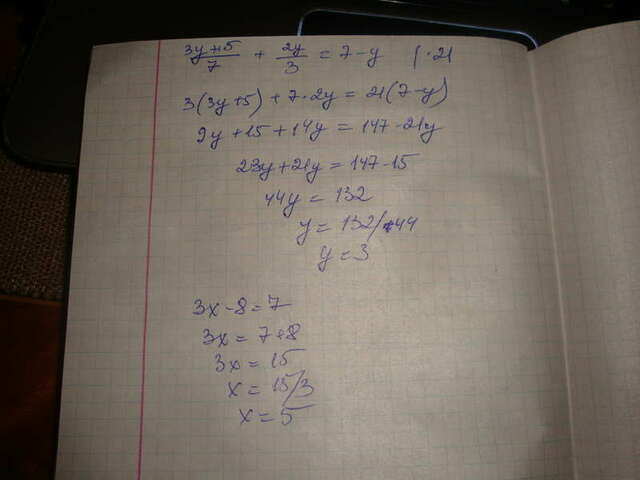 (3y+5)/7 + 2y/3 = 7-y | ·21
3(3y+5)+7·2y = 21(7-y)
9y+15+14y = 147-21y
23y+21y = 147-15
44y = 132
y = 132/44
y = 3
3x-8=7
3x = 7+8
3x = 15
x = 15/3
x = 5